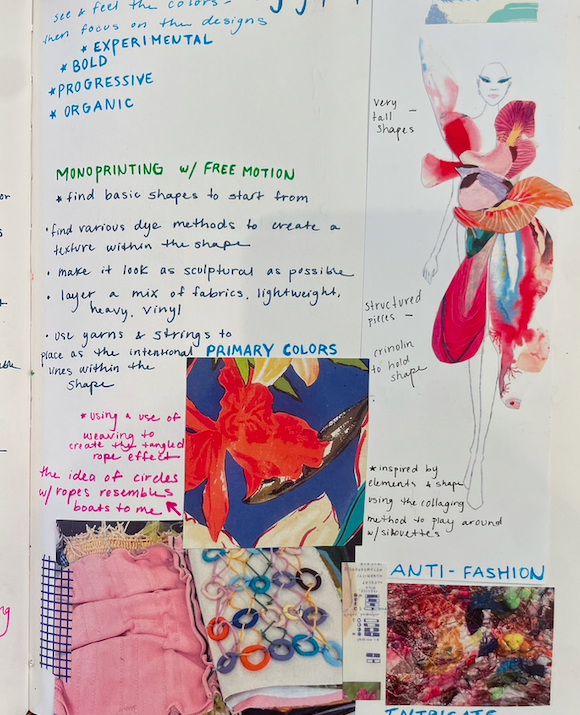 see & feel the colors -
then focus on the designs
* EXPERIMENTAL
* BOLD
* PROGRESSIVE
* ORGANIC
MONOPRINTING w/ FREE MOTION
* find basic shapes to start from
• find various dye methods to create a
texture within the shape
• make it look as sculptural as possible
• layer a mix of fabrics, lightweight,
heavy, vinyl
• use yarns & strings to
place as the intentional
lines within the
shape
PRIMARY COLORS
* using a use of
weaving to
create the tangled
rope effect
the idea of circles
w/ ropes resembles
boats to me
very
tall
shapes
structured
pieces
crinolin
to hold
shape
* inspired by
elements & shape
using the collaging
method to play around
w/ silouettes
ANTI-FASHION
INTRICATE